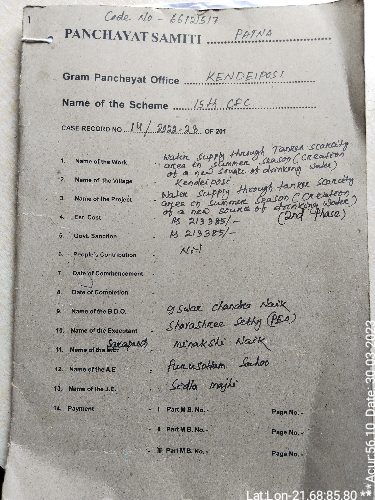 1
Code No - 6612/517
PANCHAYAT SAMITI PATNA
Gram Panchayat Office KENDEIPOSI
Name of the Scheme 15th CFC
CASE RECORD NO. 14/2022-23 OF 201
1. Name of the Work - Water Supply through Tanker scarcity
area in summer season (creation
of a new source of drinking water)
2. Name of the Village Kendeiposi
3. Name of the Project - Water Supply through tanker scarcity
area in summer season (creation
of a new source of drinking water)
(2nd Phase)
4. Est. Cost Rs 213385/-
5. Govt. Sanction Rs 213385/-
6. People's Contribution - Nil
7. Date of Commencement -
8. Date of Completion -
9. Name of the B.D.O. - Iswar Chandra Naik
10. Name of the Executant - Sethy (PEO)
11. Name of the Sarapanch - Minakshi Naik
12. Name of the A.E - Purusottam Sahoo
13. Name of the J.E. - majhi
14. Payment - I Part M.B. No. - Page No. -
II Part M.B. No. - Page No. -
III Part M.B. No. - Page No. -
Lat:Lon-21.68:85.80 ** Acur:56.10, Date: 30-03-2023